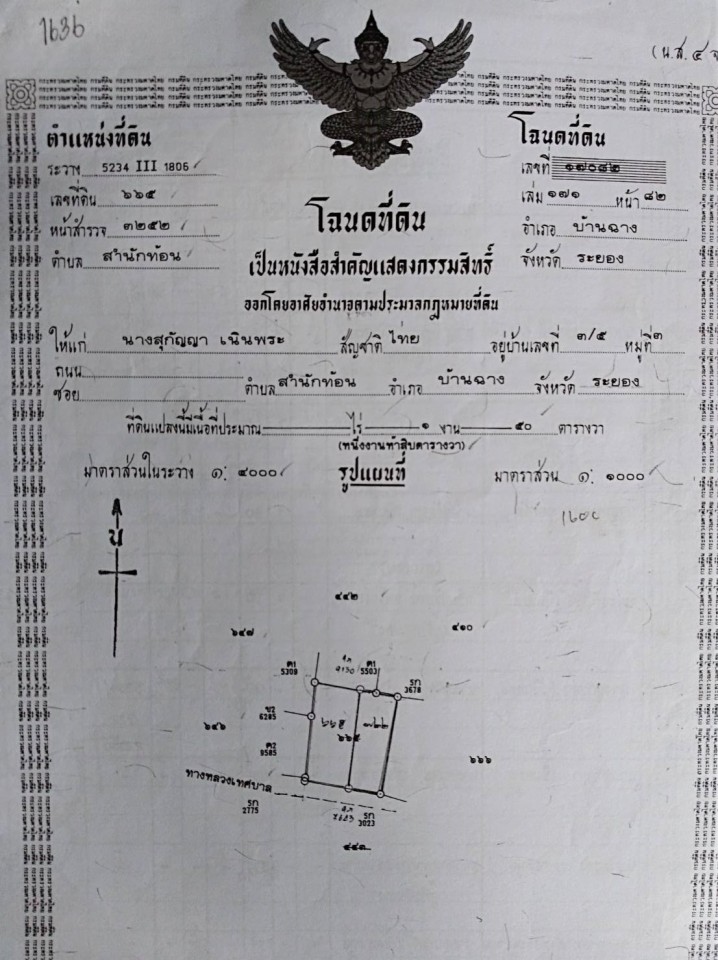 1636
(น.ส. ๔ จ
ตำแหน่งที่ดิน
ระวาง 5234 III 1806
เลขที่ดิน ๖๖๕
หน้าสำรวจ ๓๒๕๒
ตำบล สำนักท้อน
โฉนดที่ดิน
เลขที่ ๑๗๐๘๒
เล่ม ๑๗๑ หน้า ๘๒
อำเภอ บ้านฉาง
จังหวัด ระยอง
โฉนดที่ดิน
เป็นหนังสือสำคัญแสดงกรรมสิทธิ์
ออกโดยอาศัยอำนาจตามประมวลกฎหมายที่ดิน
ให้แก่ นางสุกัญญา เนินพระ สัญชาติ ไทย อยู่บ้านเลขที่ ๓/๕ หมู่ที่ ๓
ถนน
ซอย ตำบล สำนักท้อน อำเภอ บ้านฉาง จังหวัด ระยอง
ที่ดินแปลงนี้มีเนื้อที่ประมาณ ไร่ ๑ งาน ๕๐ ตารางวา
(หนึ่งงานห้าสิบตารางวา)
มาตราส่วนในระวาง ๑: ๔๐๐๐ รูปแผนที่ มาตราส่วน ๑: ๑๐๐๐
น
๔๔๒
๖๔๗ ๔๑๐
ค1
5309
ค1
5503
รก
3678
ข2
6285
๖๔๖
ค2
8585
๖๖๕
๗๒๒
๖๖๖
ทางหลวงเทศบาล
รก
2775
รก
3023
๔๔๓